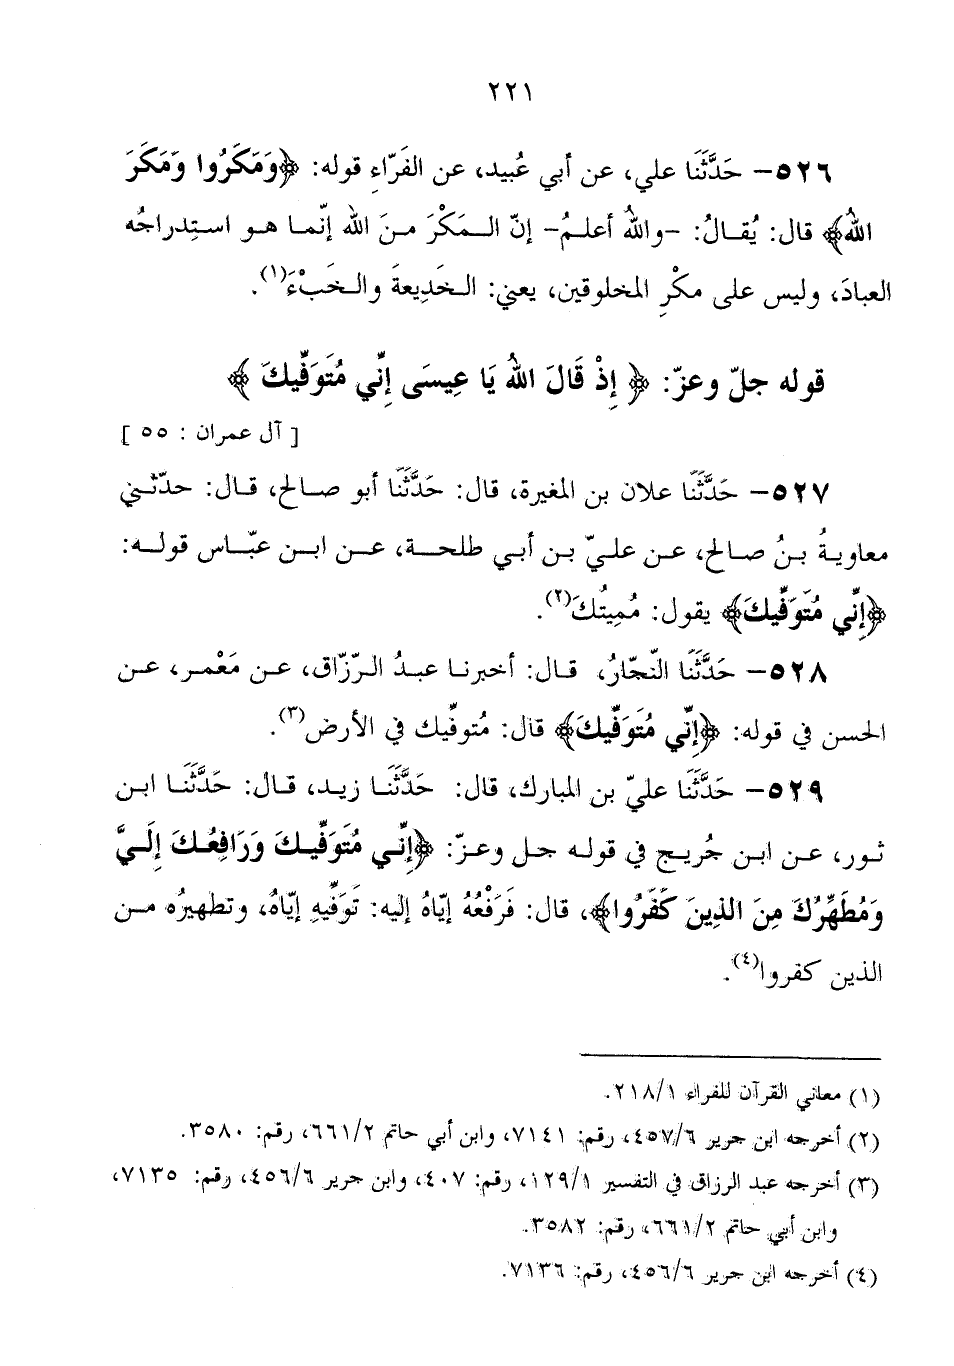 ٢٢١
٥٢٦- حَدَّثَنَا علي، عن أبي عُبيد، عن الفَرّاءِ قوله: ﴿وَمَكَرُوا وَمَكَرَ
اللهُ﴾ قال: يُقالُ: -واللهُ أعلمُ- إنّ المَكْرَ منَ الله إنّما هو استِدراجُه
العبادَ، وليس على مكْرِ المخلوقين، يعني: الخَدِيعةَ والخَبْءَ(١).
قوله جلّ وعزّ: ﴿ إِذْ قَالَ اللهُ يَا عِيسَى إِنِّي مُتَوَفِّيكَ ﴾
[ آل عمران : ٥٥ ]
٥٢٧- حَدَّثَنَا علان بن المغيرة، قال: حَدَّثَنَا أبو صالح، قال: حدّثني
معاويةُ بنُ صالح، عن عليّ بن أبي طلحة، عن ابن عبّاس قوله:
﴿إِنِّي مُتَوَفِّيكَ﴾ يقول: مُمِيتُكَ(٢).
٥٢٨- حَدَّثَنَا النّجّارُ، قال: أخبرنا عبدُ الرّزّاق، عن مَعْمر، عن
الحسن في قوله: ﴿إِنِّي مُتَوَفِّيكَ﴾ قال: مُتوفِّيك في الأرض(٣).
٥٢٩- حَدَّثَنَا عليّ بن المبارك، قال: حَدَّثَنَا زيد، قال: حَدَّثَنَا ابن
ثور، عن ابن جُريج في قوله جل وعزّ: ﴿إِنِّي مُتَوَفِّيكَ وَرَافِعُكَ إِلَيَّ
وَمُطَهِّرُكَ مِنَ الذِينَ كَفَرُوا﴾، قال: فَرَفْعُهُ إيّاهُ إليه: تَوَفِّيهِ إيّاهُ، وتطهيرُه من
الذين كفروا(٤).
(١) معاني القرآن للفراء ٢١٨/١.
(٢) أخرجه ابن جرير ٤٥٧/٦، رقم: ٧١٤١، وابن أبي حاتم ٦٦١/٢، رقم: ٣٥٨٠.
(٣) أخرجه عبد الرزاق في التفسير ١٢٩/١، رقم: ٤٠٧، وابن جرير ٤٥٦/٦، رقم: ٧١٣٥،
وابن أبي حاتم ٦٦١/٢، رقم: ٣٥٨٢.
(٤) أخرجه ابن جرير ٤٥٦/٦، رقم: ٧١٣٦.